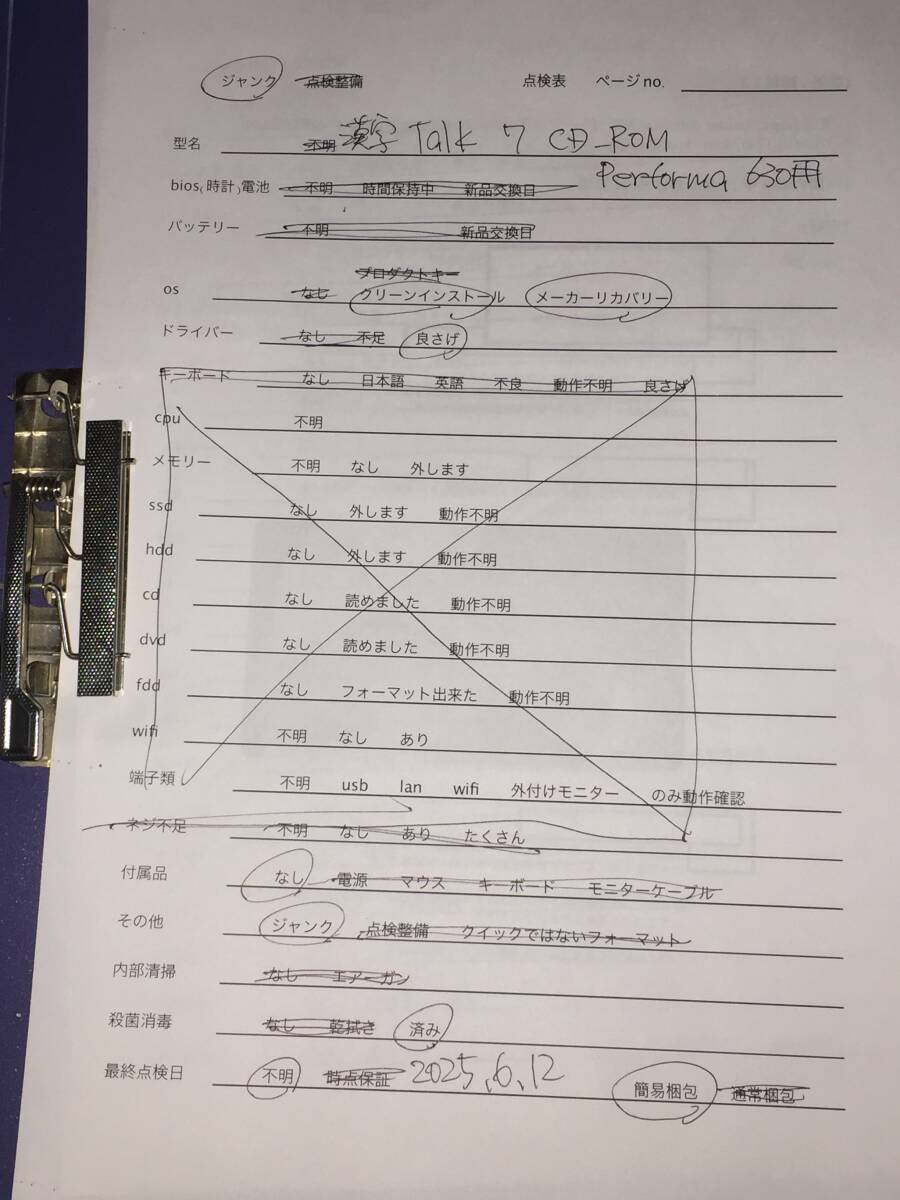 ジャンク 点検整備 点検表 ページno.
型名 不明 漢字 Talk 7 CD-ROM
Performa 630用
bios(時計)電池 不明 時間保持中 新品交換目
バッテリー 不明 新品交換目
プロダクトキー
os なし クリーンインストール メーカーリカバリー
ドライバー なし 不足 良さげ
キーボード なし 日本語 英語 不良 動作不明 良さげ
cpu 不明
メモリー 不明 なし 外します
ssd なし 外します 動作不明
hdd なし 外します 動作不明
cd なし 読めました 動作不明
dvd なし 読めました 動作不明
fdd なし フォーマット出来た 動作不明
wifi 不明 なし あり
端子類 不明 usb lan wifi 外付けモニター のみ動作確認
ネジ不足 不明 なし あり たくさん
付属品 なし 電源 マウス キーボード モニターケーブル
その他 ジャンク 点検整備 クイックではないフォーマット
内部清掃 なし エアーガン
殺菌消毒 なし 乾拭き 済み
最終点検日 不明 時点保証 2025.6.12 簡易梱包 通常梱包